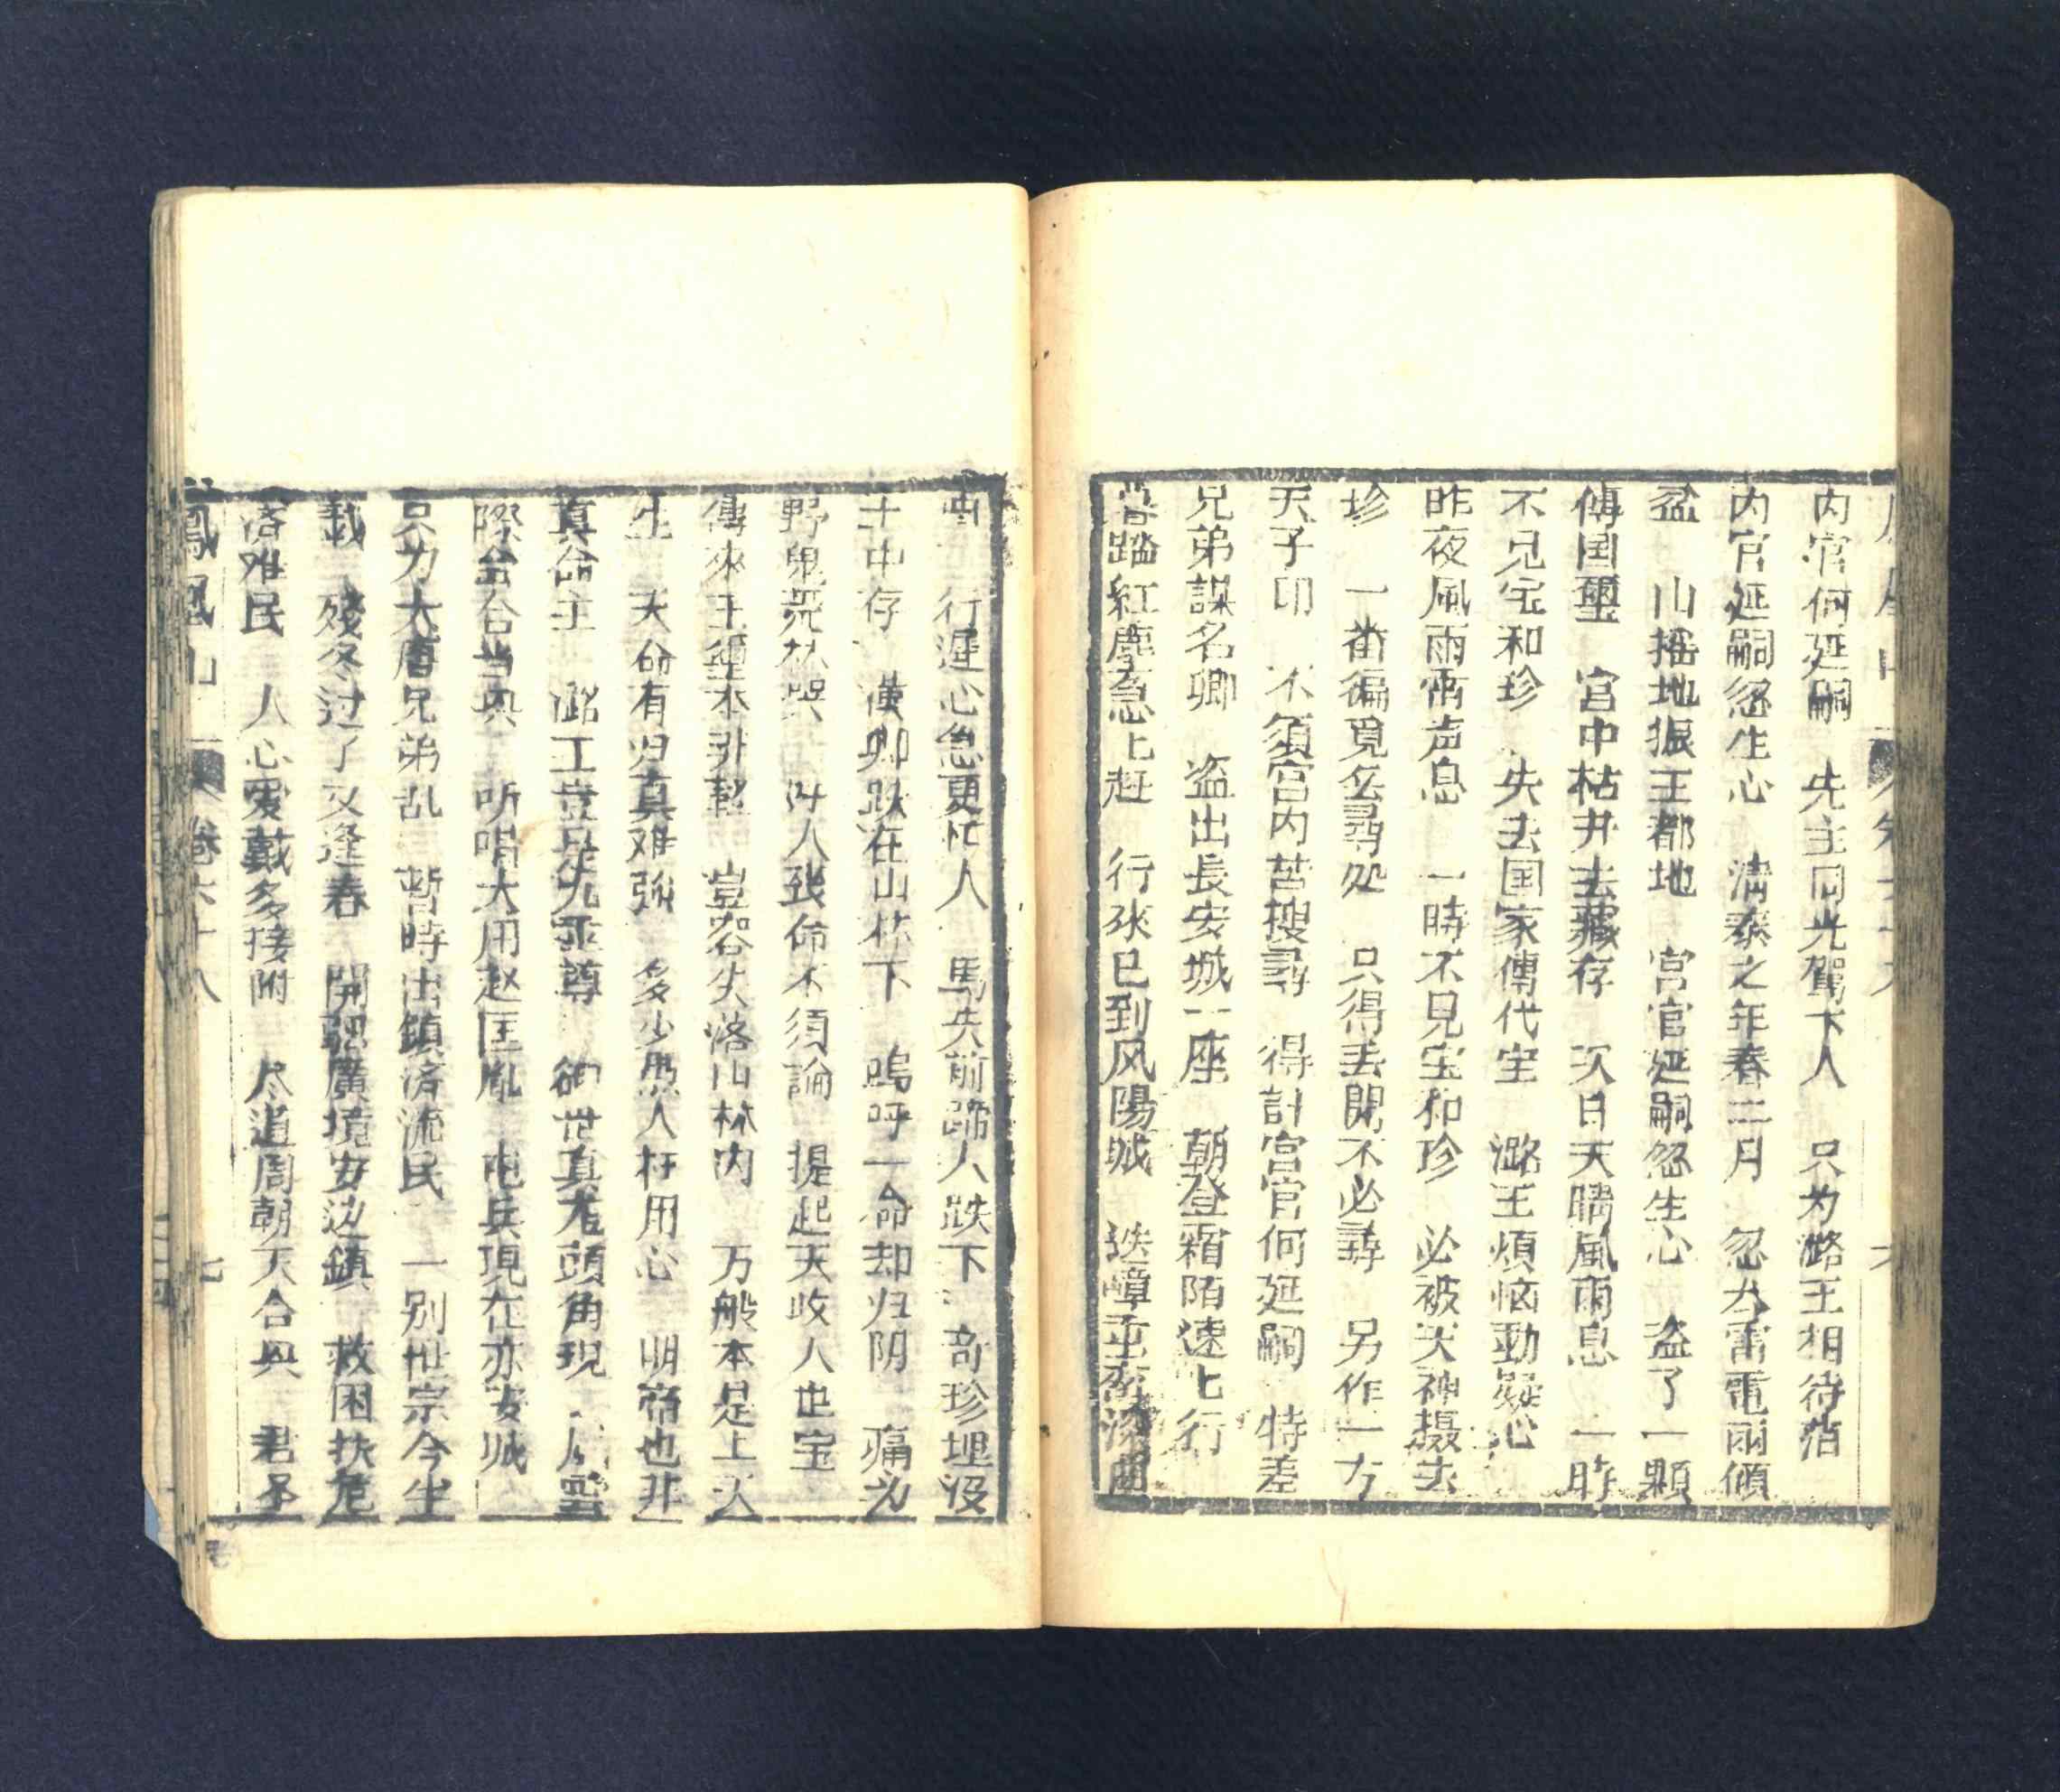 内官何延嗣　先主同光駕下人　只为潞王相待萡
内官延嗣忽生心　清泰之年春二月　忽大雷電雨傾
盆　山摇地振王都地　宮官延嗣忽生心　盗了一顆
傳国璽　宮中枯井去藏存　次日天晴風雨息　一時
不见宝和珍　失去国家傳代宝　潞王煩恼動疑心
昨夜風雨雷声息　一時不见宝和珍　必被天神摄去
珍　一番徧覓多尋処　只得丢開不必尋　另作一方
天子印　不須宫内苦搜尋　得計宫官何延嗣　特差
兄弟謀名卿　盗出長安城一座　朝登霜陌速上行
暮踏紅塵急上赶　行來已到风陽城　迭嶂
行遲心急更忙人　馬失前蹄人跌下　奇珍埋没
土中存　漢卿跌在山林下　嗚呼一命却归阴　痛为
野鬼荒林哭　叫人致命不須論　提起天收人也宝
傳來王璽本非輕　豈容失落山林内　万般本是上天
生　天命有归真难強　多少愚人枉用心　明帝也非
真命主　潞王豈是九重尊　世真龙頭角現　風雲
際会合当兴　听唱大用赵匡胤　屯兵現在亦安城
只为大唐兄弟乱　暫時出鎮済流民　一别世宗今半
載　殘冬过了又逢春　開疆廣境安边鎮　救困扶危
済难民　人心爱戴多接附　尽道周朝天合兴　君圣
鳳凰山　卷六十八　七